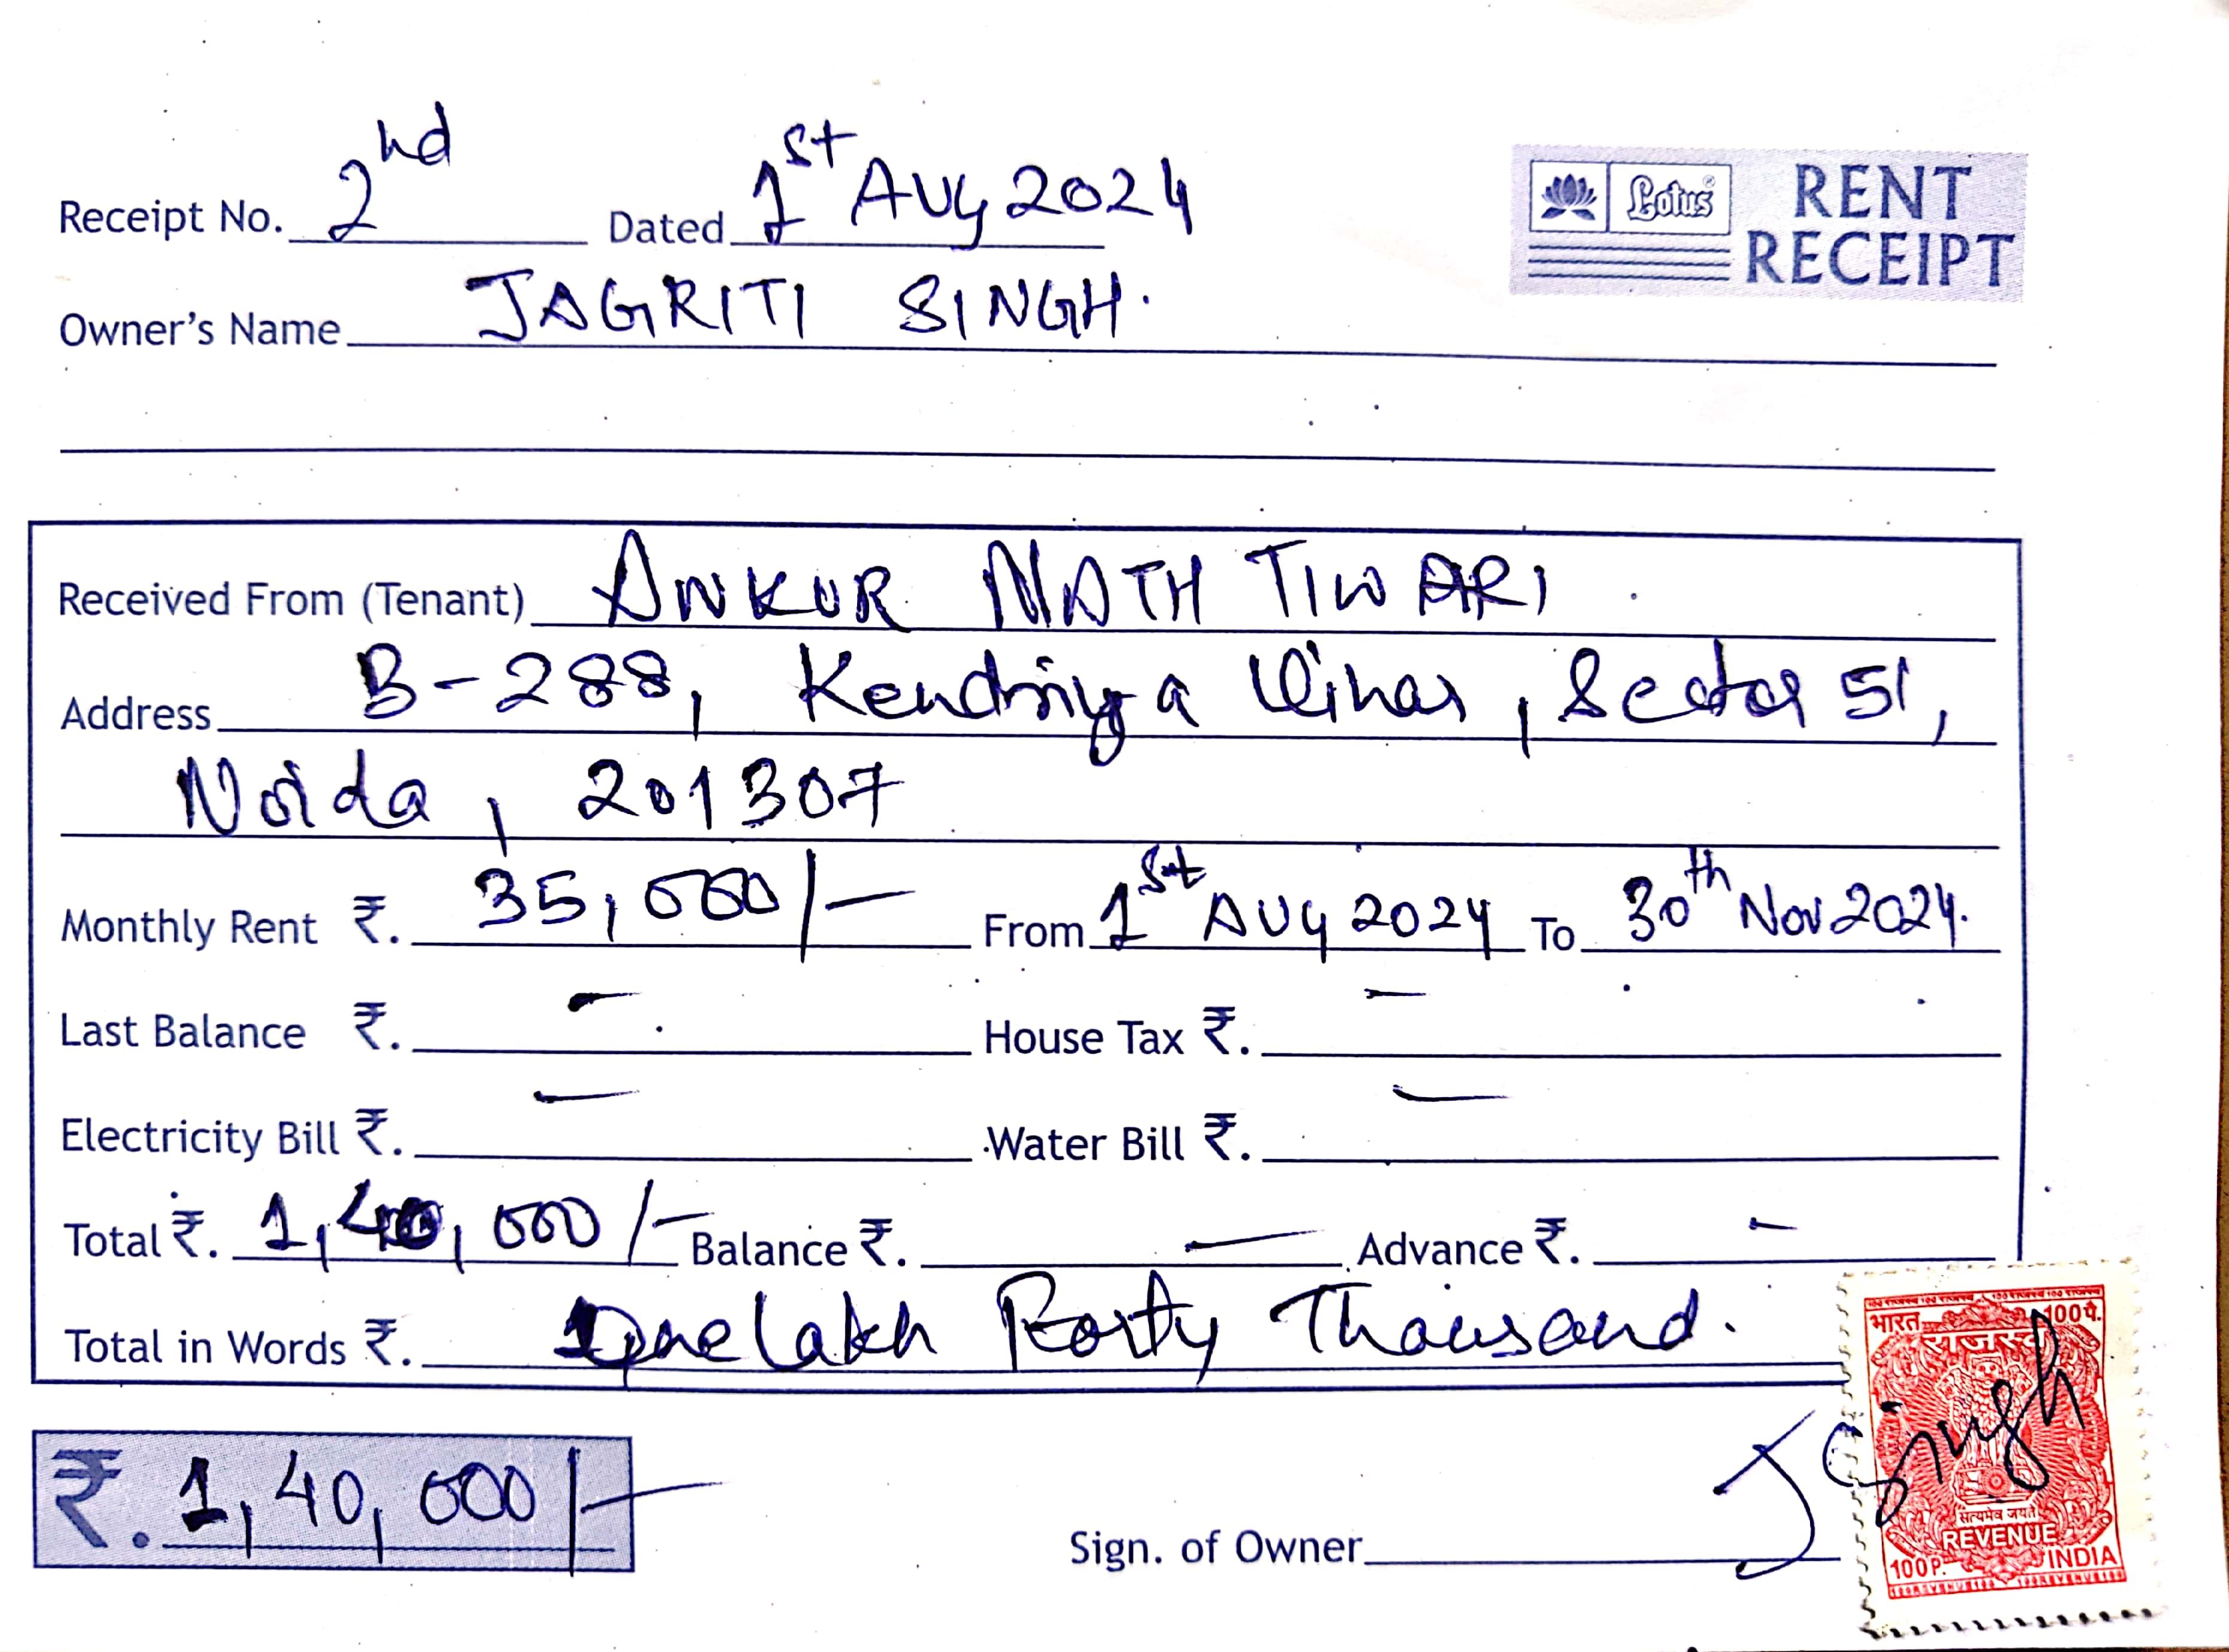 Receipt No. 2nd Dated 1st Aug 2024
Lotus RENT RECEIPT
Owner's Name JAGRITI SINGH.
Received From (Tenant) ANKUR NATH TIWARI
Address B-288, Kendriya Vihar, Sector 51,
Noida, 201307
Monthly Rent ₹. 35,000/- From 1st Aug 2024 To 30th Nov 2024.
Last Balance ₹. - House Tax ₹. -
Electricity Bill ₹. - Water Bill ₹. -
Total ₹. 1,40,000/- Balance ₹. - Advance ₹. -
Total in Words ₹. One lakh Forty Thousand.
₹. 1,40,000/-
Sign. of Owner JSingh
भारत 100पै.
सत्यमेव जयते
REVENUE
100P. INDIA